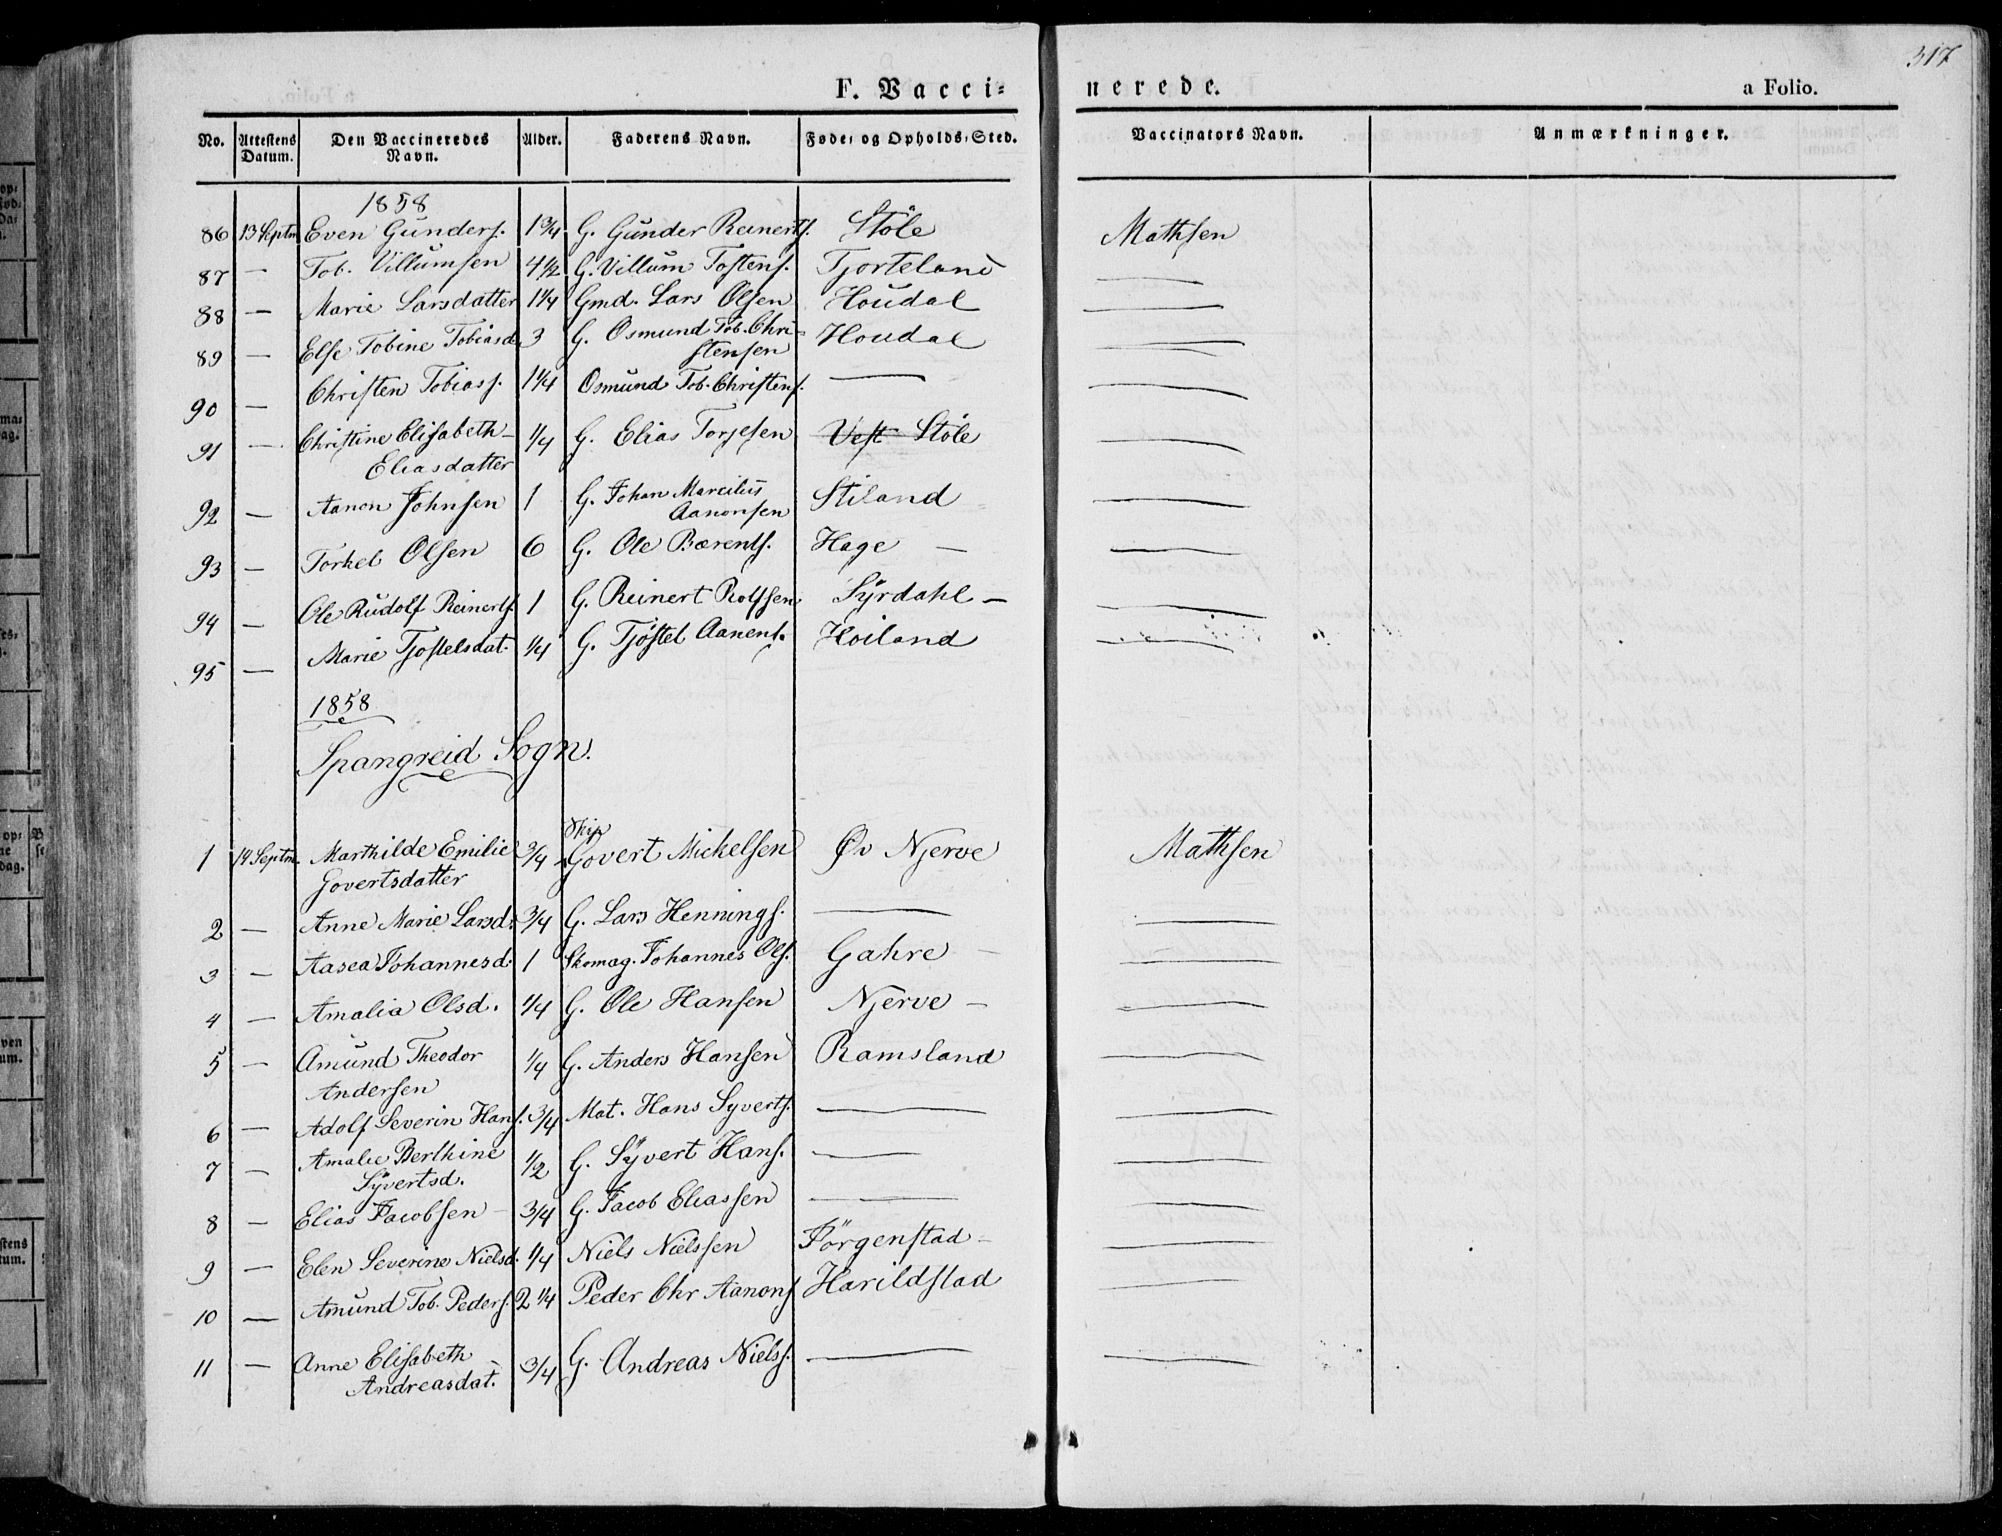 317
F. Vacci=nerede.
a Folio.
No. Attestens Datum. Den Vaccineredes Navn. Alder. Faderens Navn. Føde- og Opholds-Sted. Vaccinators Navn. Anmærkninger.
1858
86 13 Septm Even Gunders. 1 3/4 G. Gunder Reinerts. Støle Mathsen
87 — Tob. Villumsen 4 1/2 G. Villum Tostens. Tjorteland —
88 — Marie Larsdatter 1 1/4 Gmd. Lars Olsen Houdal —
89 — Else Tobine Tobiasd. 3 G. Osmund Tob. Chri-
stensen Houdal —
90 — Christen Tobiass. 1 1/4 Osmund Tob. Christens. — —
91 — Christine Elisabeth 1/4 G. Elias Torjesen Vest Støle —
Eliasdatter
92 — Aanon Johnsen 1 G. Johan Marcilius Stiland —
Aanonsen
93 — Torkel Olsen 6 G. Ole Bærents. Hage — —
94 — Ole Rudolf Reinerts. 1 G. Reinert Rolfsen Syrdahl — —
95 — Marie Tjostelsdat. 1/4 G. Tjöstel Aanens. Hoiland —
1858
Spangreid Sogn.
Skip
1 14 Septm. Marthilde Emilie 3/4 Govert Mickelsen Øv Njerve Mathsen
Govertsdatter
2 — Anne Marie Larsd. 3/4 G. Lars Hennings. — —
3 — Aasea Johannesd. 1 Skomag. Johannes Ols. Gahre — —
4 — Amalia Olsd. 1/4 G. Ole Hansen Njerve — —
5 — Amund Theodor 1/4 G. Anders Hansen Ramsland —
Andersen
6 — Adolf Severin Hans. 3/4 Mat. Hans Syverts. — —
7 — Amalie Berthine 1/2 G. Syvert Hans. — —
Syvertsd.
8 — Elias Jacobsen 3/4 G. Jacob Eliassen — —
9 — Elen Severine Nielsd. 1/4 Niels Nielssen Jörgenstad — —
10 — Amund Tob. Peders. 2 1/4 Peder Chr Aanons. Harildstad —
11 — Anne Elisabeth 3/4 G. Andreas Niels. — —
Andreasdat.